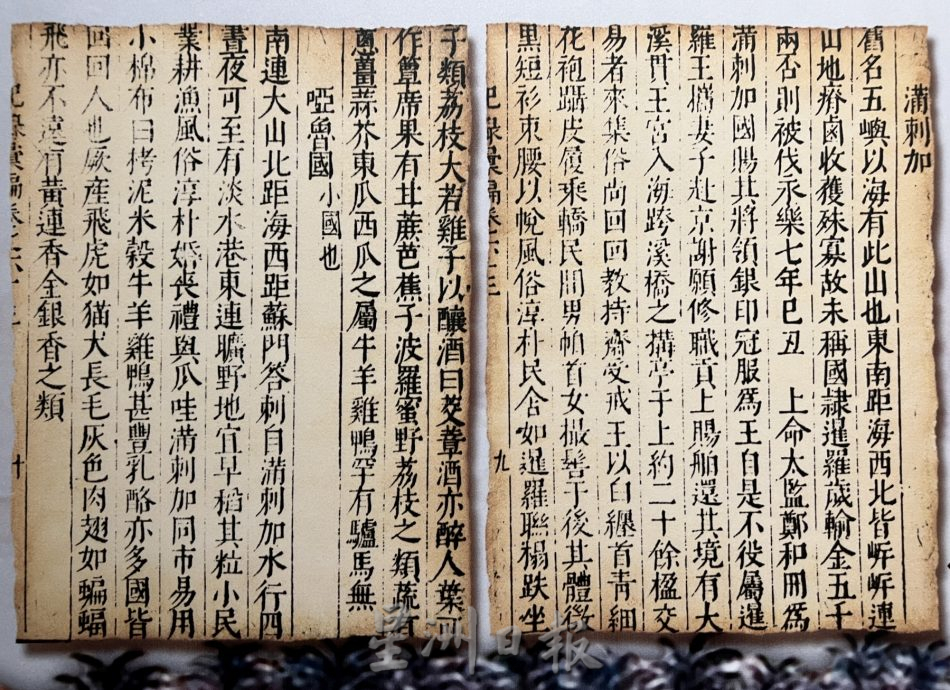 滿剌加
舊名五嶼以海有此山也東南距海西北皆岸岸連
山地瘠鹵收獲殊寡故未稱國隸暹羅歲輸金五千
兩否則被伐永樂七年己丑　上命太監鄭和冊爲
滿剌加國賜其將領銀印冠服爲王自是不役屬暹
羅王攜妻子赴京謝願修職貢上賜舶還其境有大
溪貫王宮入海跨溪橋之搆亭于上約二十餘楹交
易者來集俗尚回回教持齋受戒王以白纏首青細
花袍躡皮履乘轎民間男帕首女撮髻于後其體微
黑短衫束腰以帨風俗淳朴民舍如暹羅聯榻趺坐
紀錄彙編卷六十三
九
子類荔枝大若雞子以釀酒曰茭葦酒亦醉人葉可
作簟席果有甘蔗芭蕉子波羅蜜野荔枝之類蔬有
蔥薑蒜芥東瓜西瓜之屬牛羊雞鴨罕有驢馬無
啞魯國小國也
南連大山北距海西距蘇門答剌自滿剌加水行四
晝夜可至有淡水港東連曠野地宜旱稻其粒小民
業耕漁風俗淳朴婚喪禮與瓜哇滿剌加同市易用
小棉布曰栲泥米穀牛羊雞鴨甚豐乳酪亦多國皆
回回人也厥産飛虎如猫犬長毛灰色肉翅如蝙蝠
飛亦不遠有黃連香金銀香之類
紀錄彙編卷之六十三
十
星洲日報